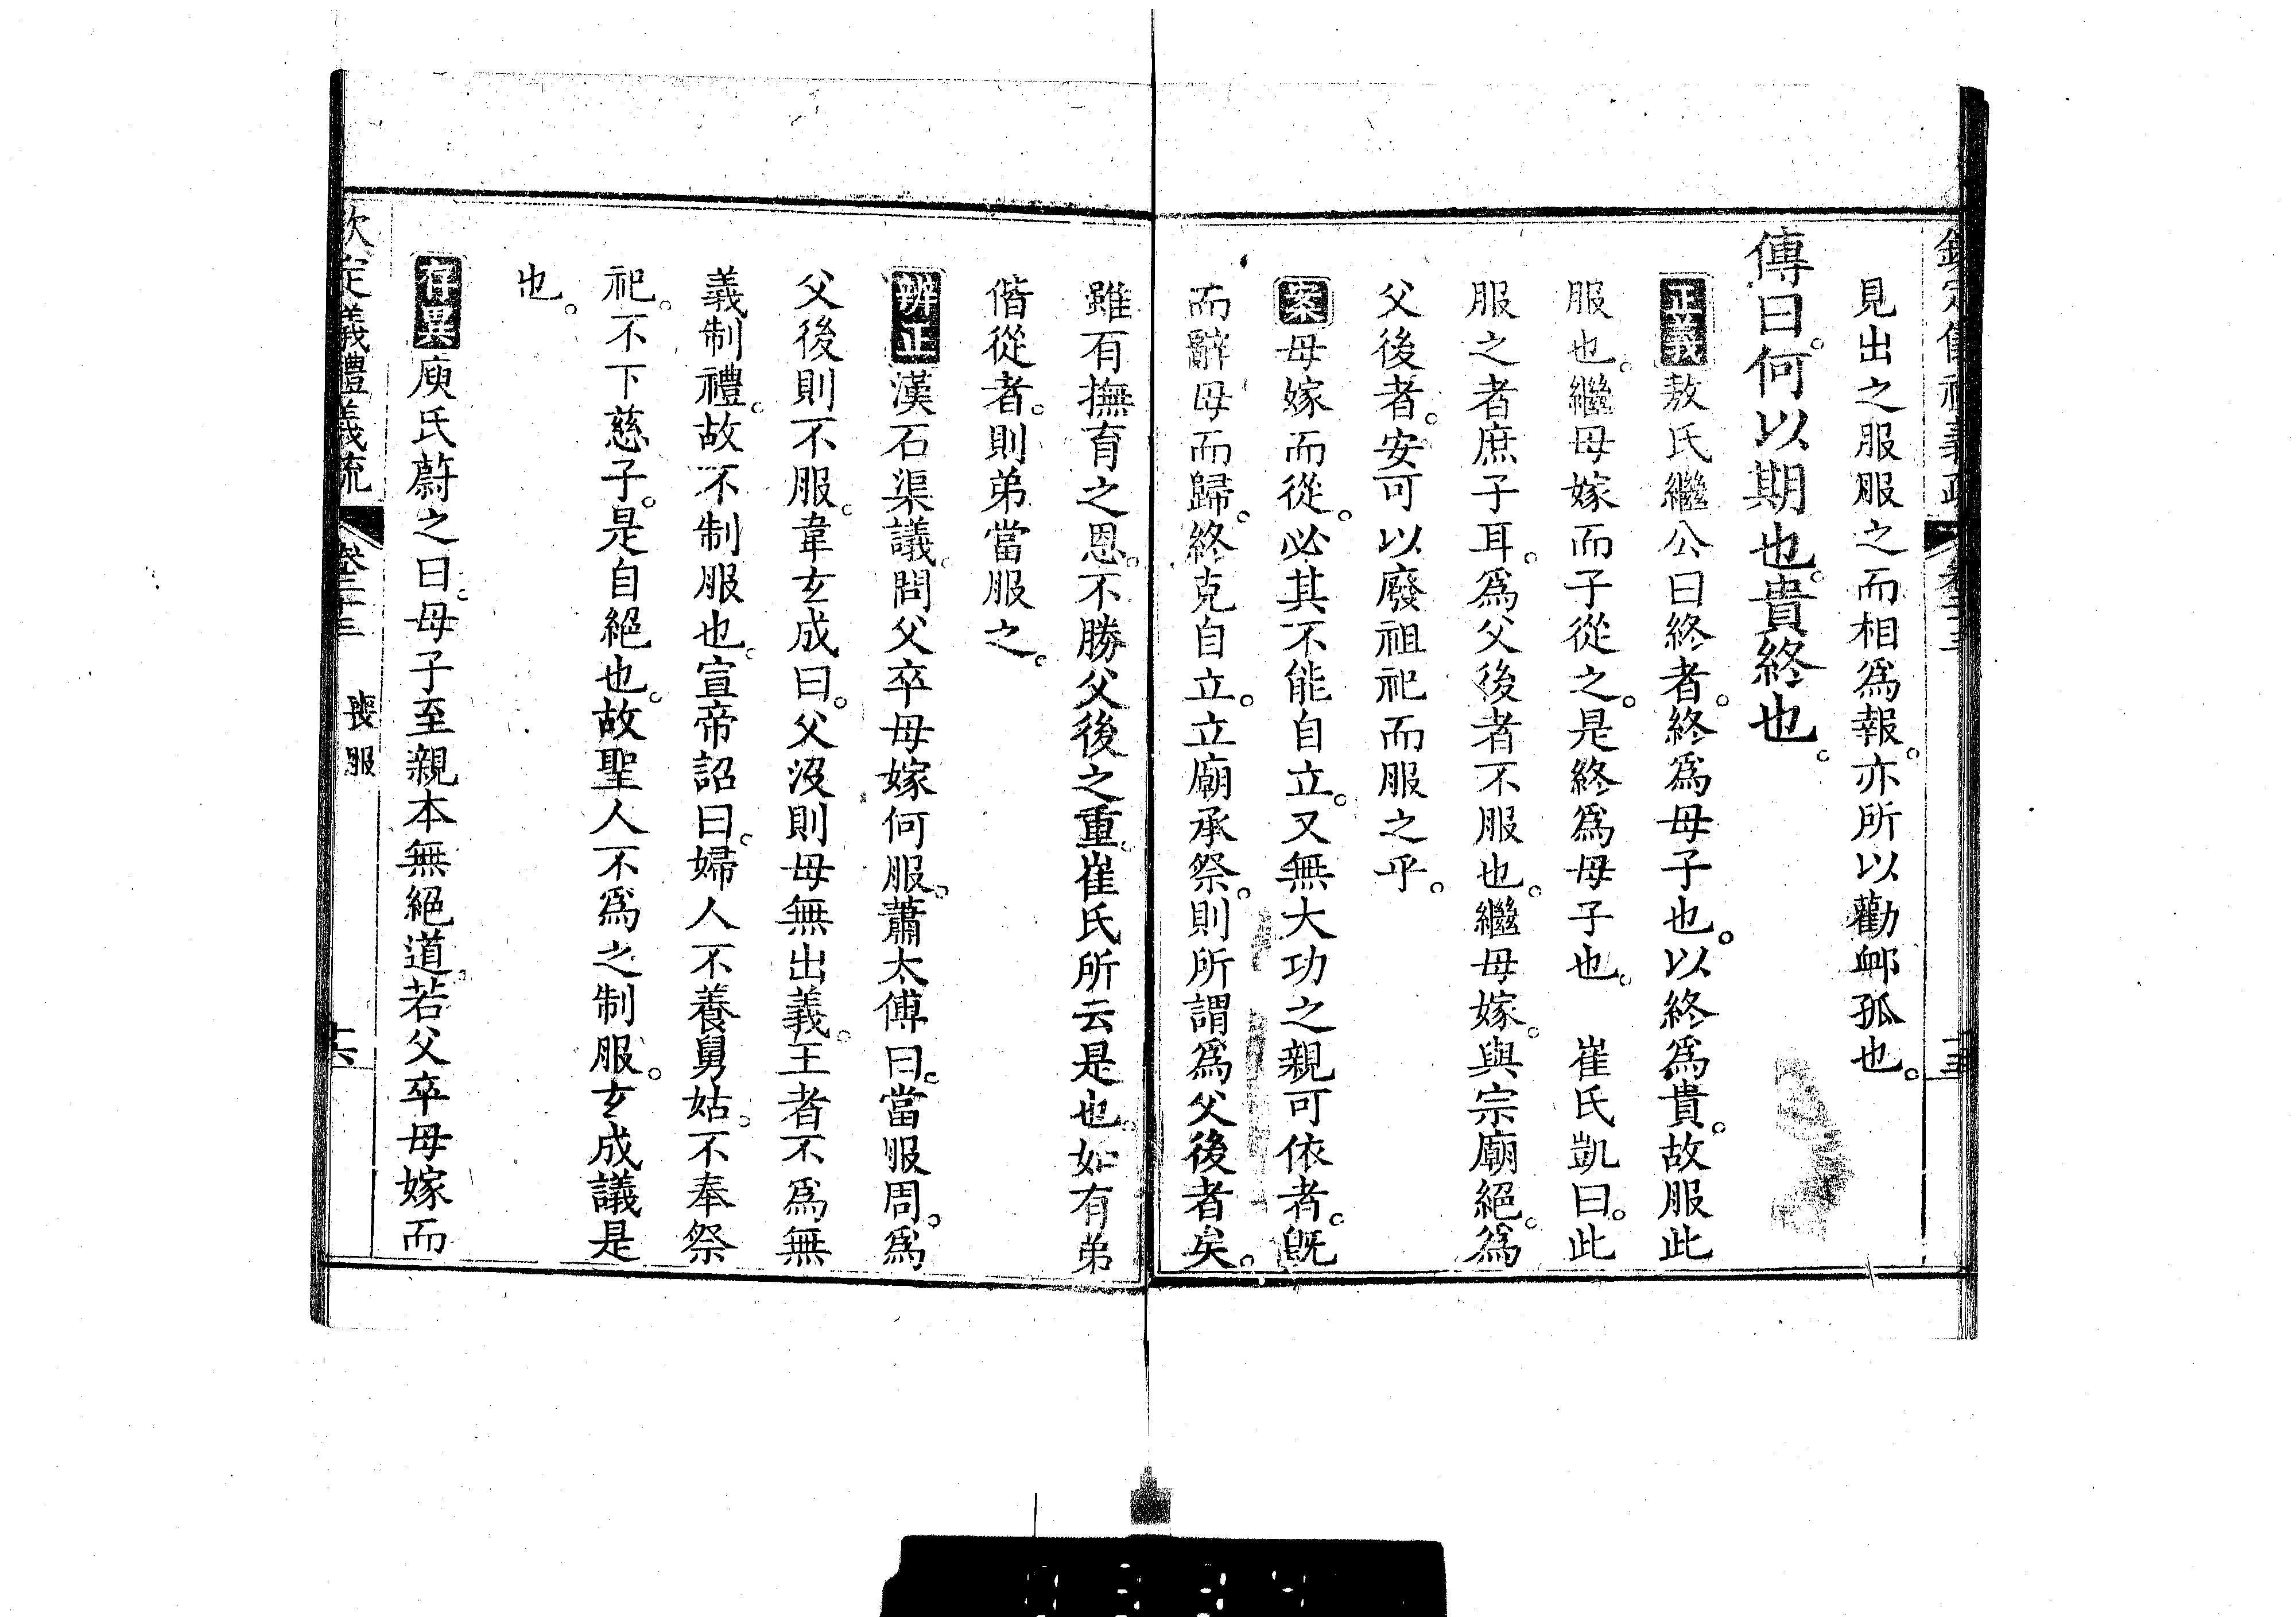 見出之服服之而相爲報。亦所以勸䘏孤也。
傳曰。何以期也。貴終也。
正義敖氏繼公曰終者。終爲母子也。以終爲貴。故服此
服也。繼母嫁而子從之。是終爲母子也。 崔氏凱曰。此
服之者庶子耳。爲父後者不服也。繼母嫁。與宗廟絕。爲
父後者。安可以廢祖祀而服之乎。
案母嫁而從。必其不能自立。又無大功之親可依者。旣
而辭母而歸。終克自立。立廟承祭。則所謂爲父後者矣。
雖有撫育之恩。不勝父後之重。崔氏所云是也。如有弟
偕從者。則弟當服之。
辨正漢石渠議。問父卒母嫁何服。蕭太傅曰。當服周。爲
父後則不服。韋玄成曰。父沒則母無出義。王者不爲無
義制禮。故不制服也。宣帝詔曰。婦人不養舅姑。不奉祭
祀。不下慈子。是自絕也。故聖人不爲之制服。玄成議是
也。
存異庾氏蔚之曰。母子至親本無絕道。若父卒母嫁而
欽定儀禮義疏 卷二十三 喪服